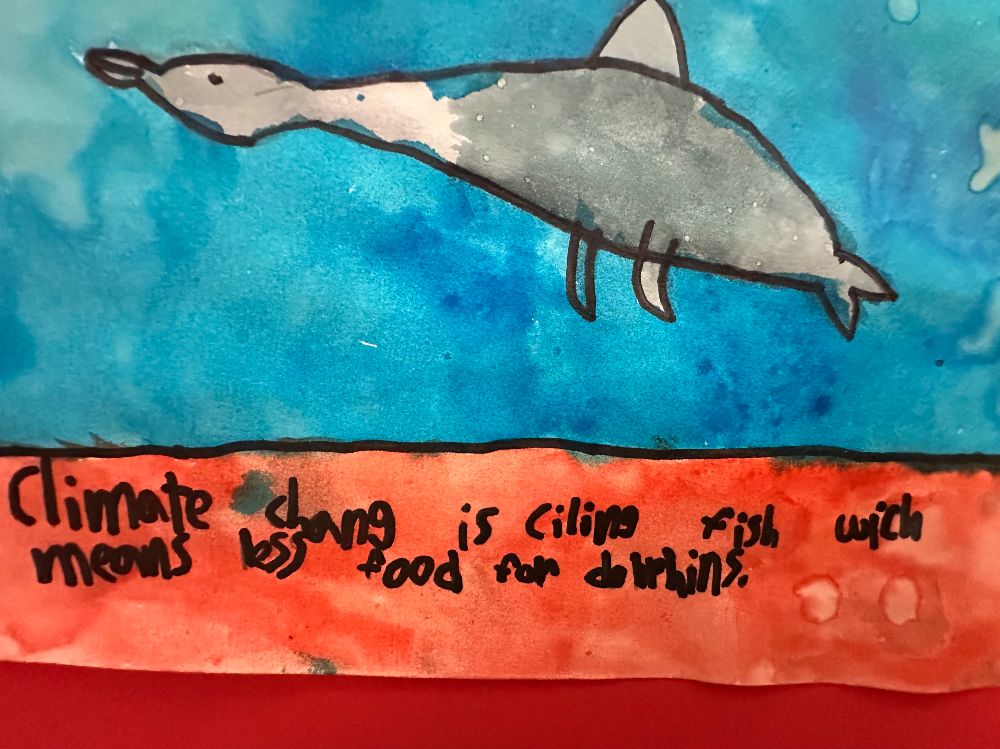 Climate chang is Ciling fish wich
means less food for dolphins.